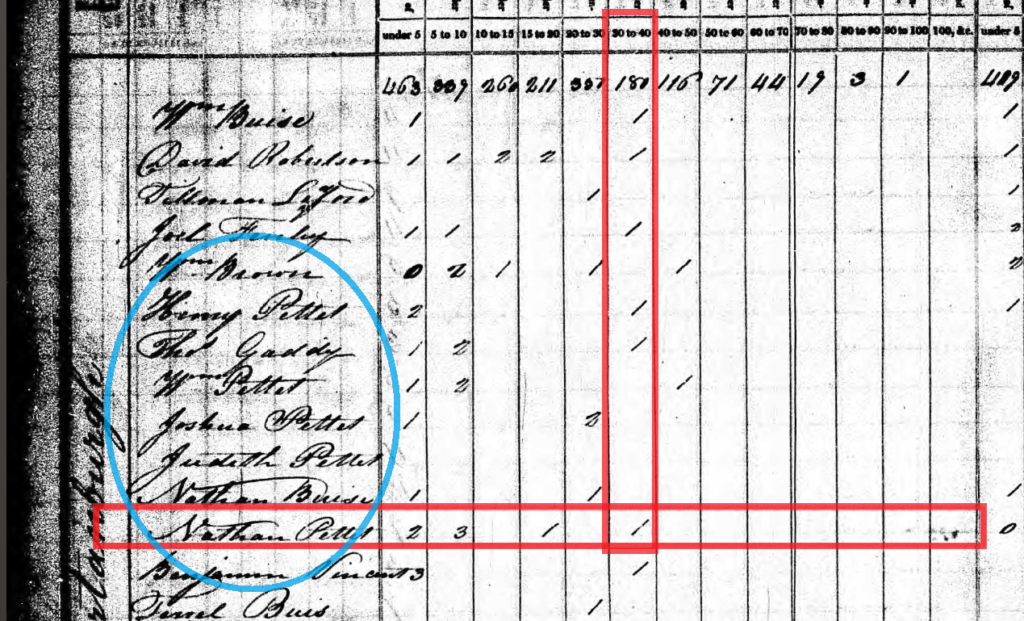 under 5 5 to 10 10 to 15 15 to 20 20 to 30 30 to 40 40 to 50 50 to 60 60 to 70 70 to 80 80 to 90 90 to 100 100, &c. under 5
463 339 260 211 337 180 116 71 44 19 3 1 409
Wm Buise 1 1 1
David Robertson 1 1 2 2 1 1
Tillman 1 1
Joel 1 1 1 2
Wm Brown 0 2 1 1 1 2
Henry Pettet 2 1 1
Thos Gaddy 1 2 1
Wm Pettet 1 2 1
Joshua Pettet 1 2
Judith Pettet
Nathan Buise 1 1 1
Nathan Pettet 2 3 1 1 0
Benjamin Vincent 3 1
Buis 1